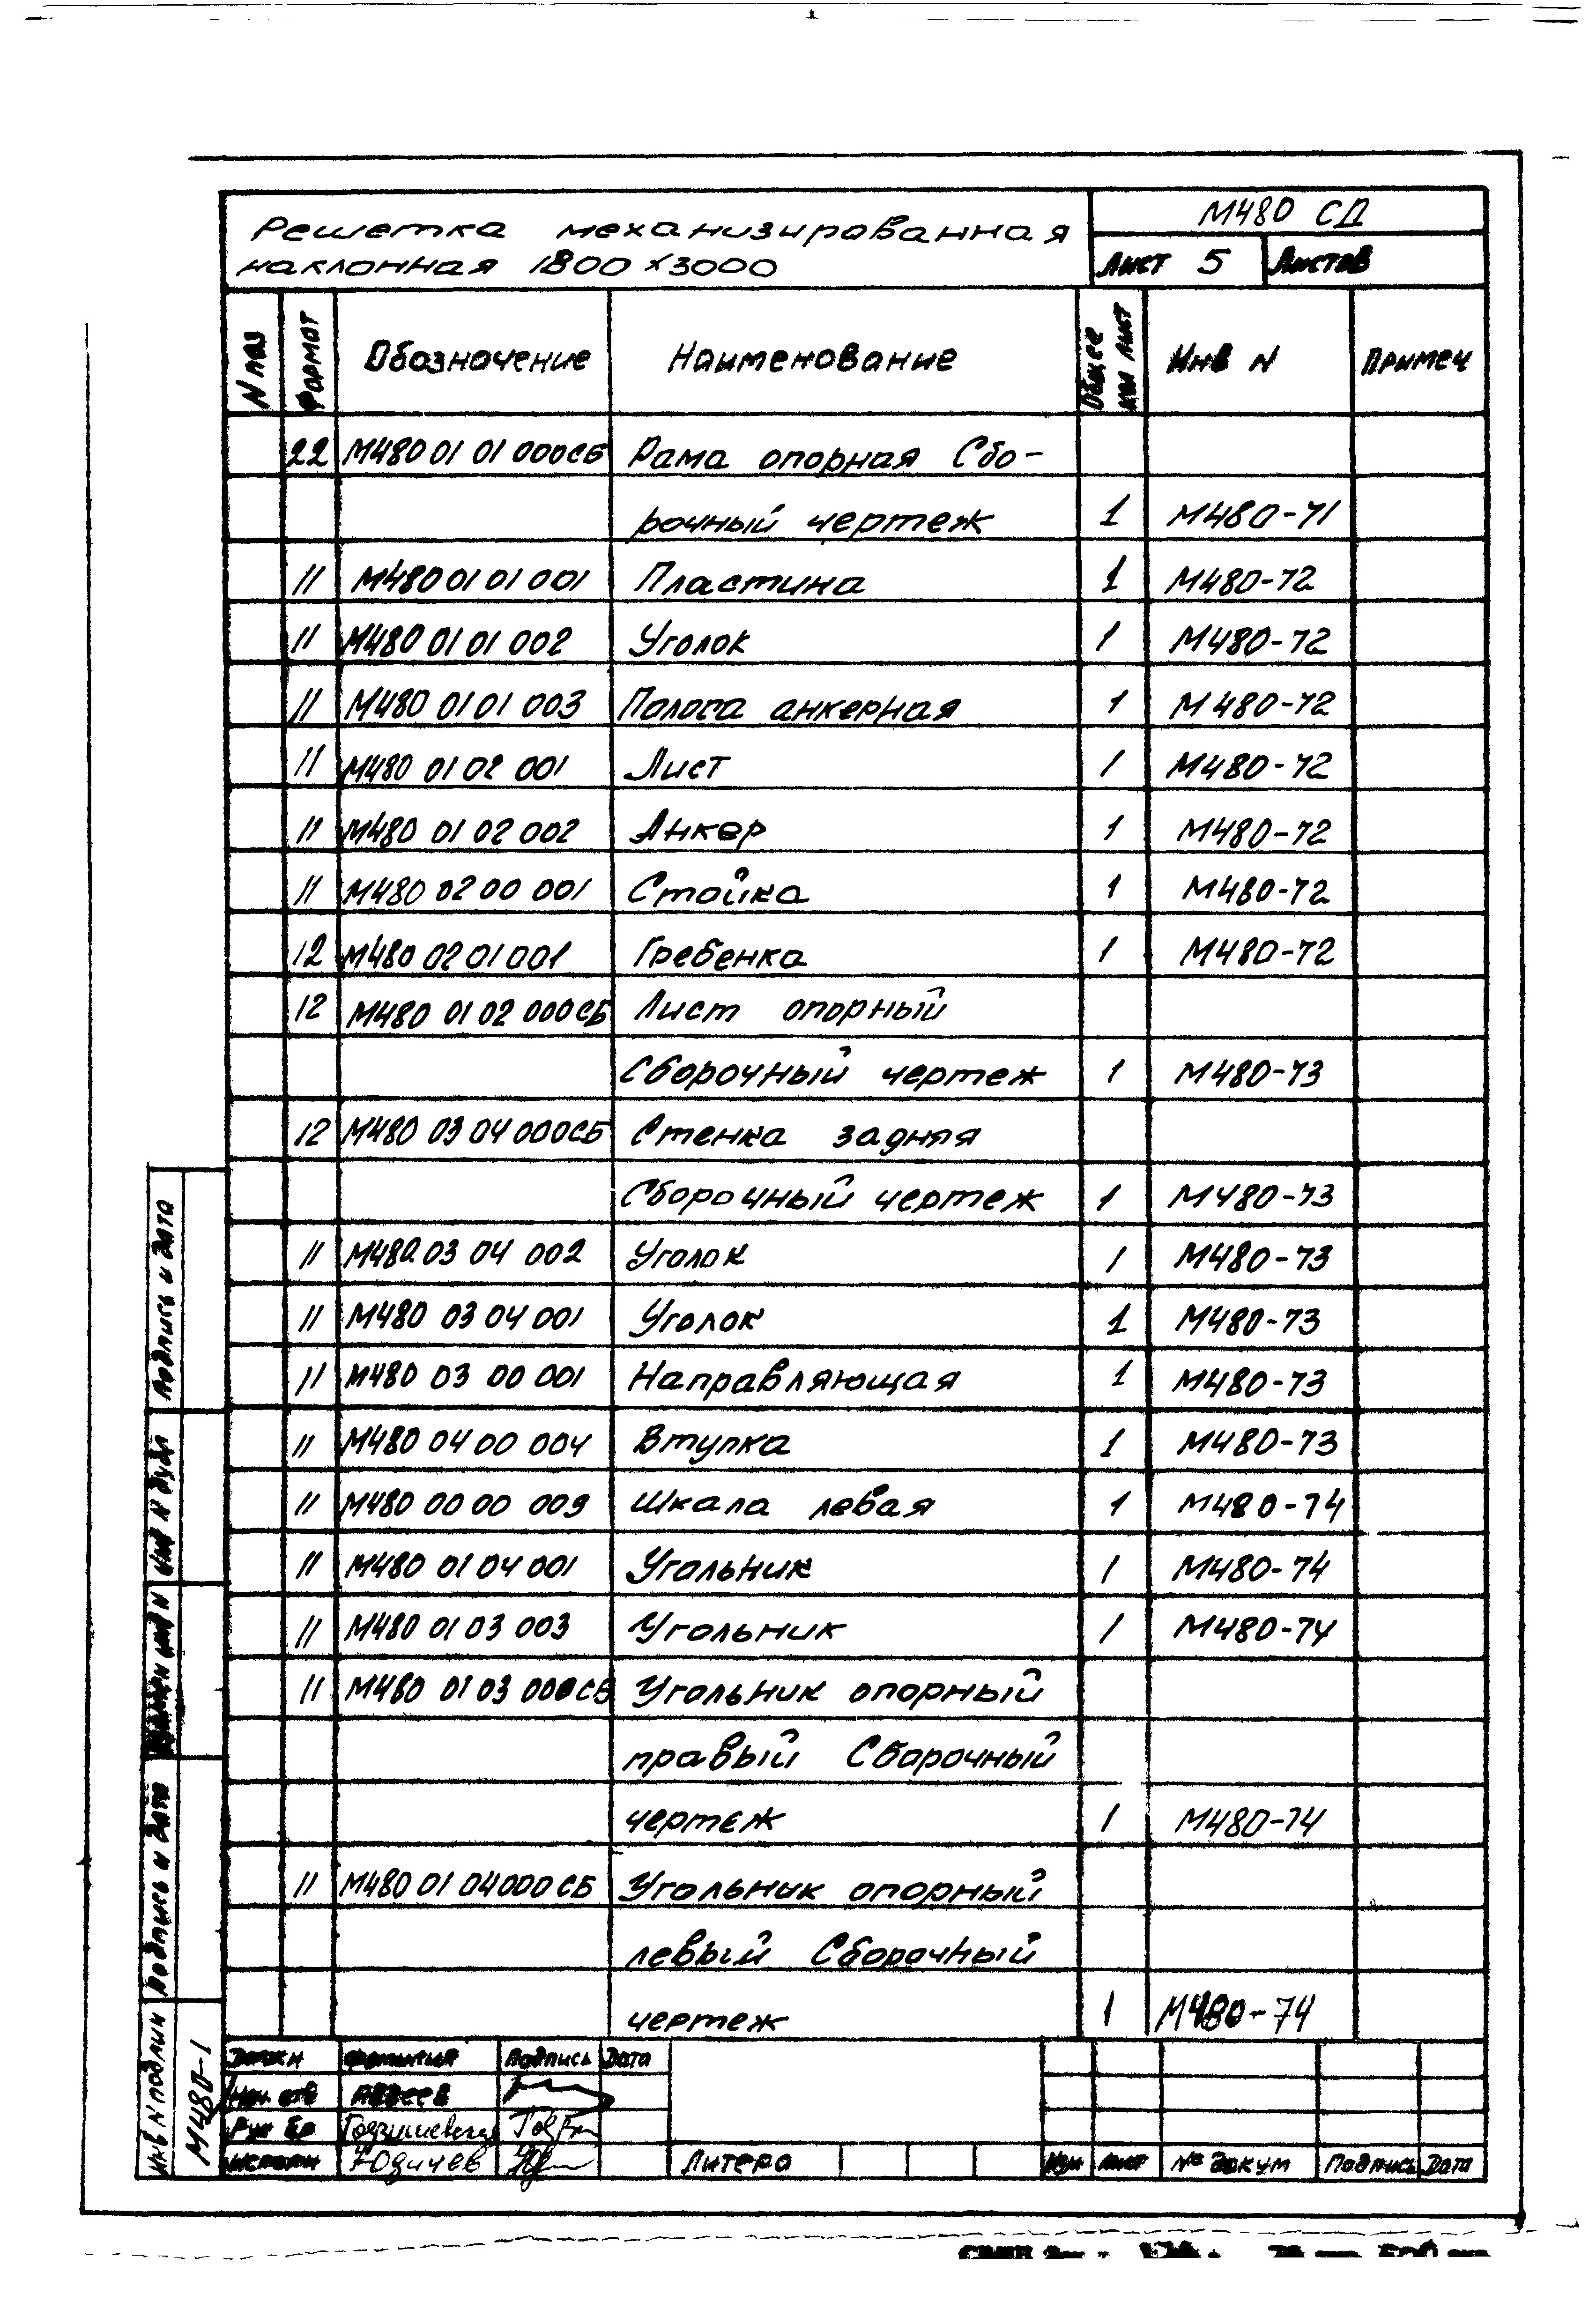 Решетка механизированная
наклонная 1800×3000
М480 СД
Лист 5 Листов
N паз Формат Обозначение Наименование Общее кол лист Инв N Примеч
22 М480 01 01 000СБ Рама опорная Сбо-
рочный чертеж 1 М480-71
11 М480 01 01 001 Пластина 1 М480-72
11 М480 01 01 002 Уголок 1 М480-72
11 М480 01 01 003 Полоса анкерная 1 М480-72
11 М480 01 02 001 Лист 1 М480-72
11 М480 01 02 002 Анкер 1 М480-72
11 М480 02 00 001 Стойка 1 М480-72
12 М480 02 01 001 Гребенка 1 М480-72
12 М480 01 02 000СБ Лист опорный
Сборочный чертеж 1 М480-73
12 М480 03 04 000СБ Стенка задняя
Сборочный чертеж 1 М480-73
11 М480.03 04 002 Уголок 1 М480-73
11 М480 03 04 001 Уголок 1 М480-73
11 М480 03 00 001 Направляющая 1 М480-73
11 М480 04 00 004 Втулка 1 М480-73
11 М480 00 00 009 Шкала левая 1 М480-74
11 М480 01 04 001 Угольник 1 М480-74
11 М480 01 03 003 Угольник 1 М480-74
11 М480 01 03 000СБ Угольник опорный
правый Сборочный
чертеж 1 М480-74
11 М480 01 04 000СБ Угольник опорный
левый Сборочный
чертеж 1 М480-74
Подпись и дата
Инв N дубл
Взамен инв N
Подпись и дата
Инв N подлин М480-1
Должн Фамилия Подпись Дата
Нач. отд Авдеев
Рук бр
Исполн Юдичев
Литера
Изм Лист № докум Подпись Дата